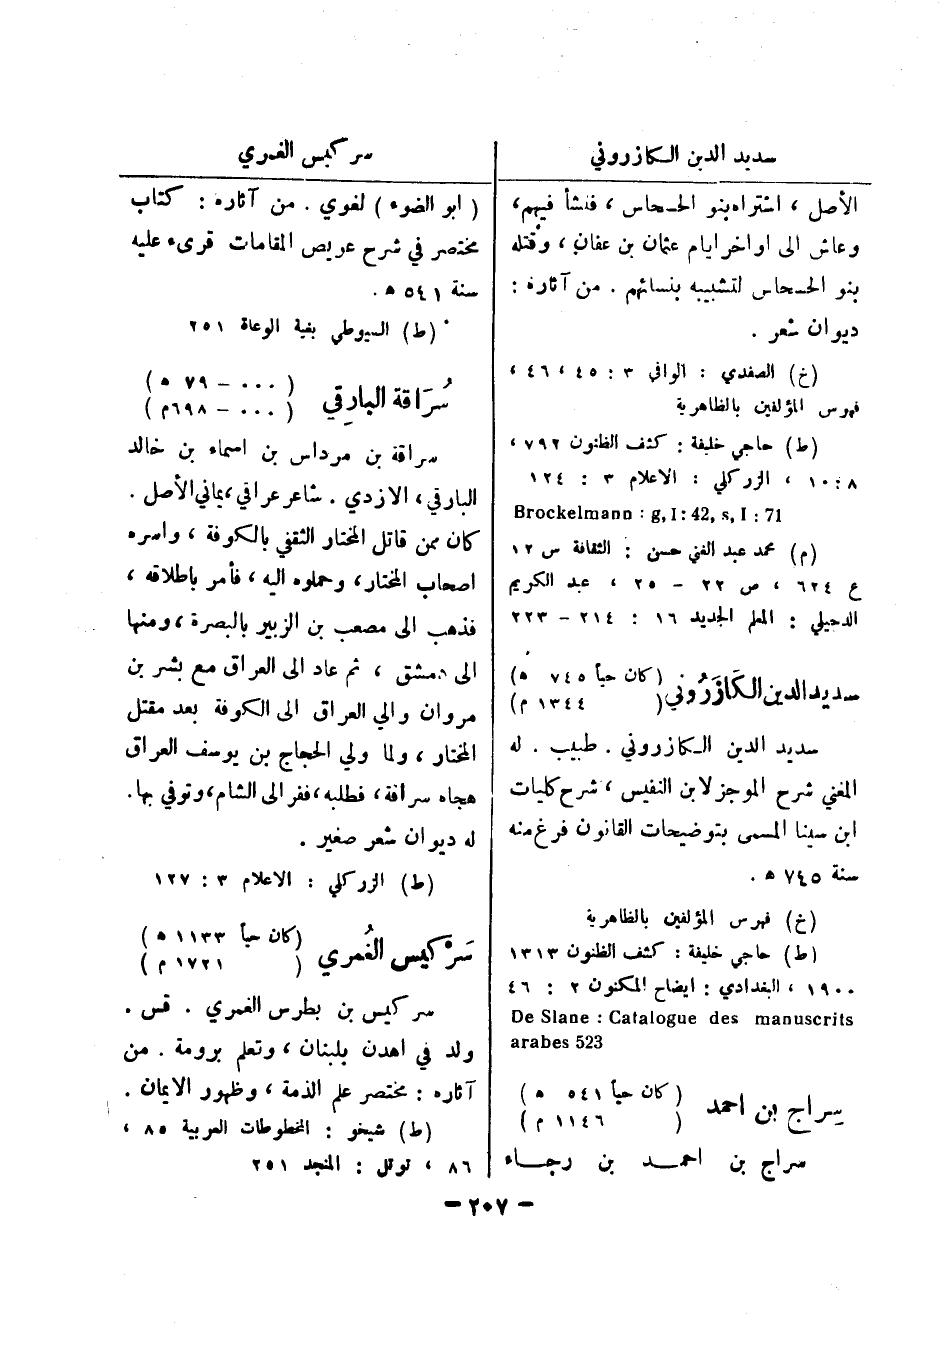 سديد الدين الكازروني
الأصل ، اشتراه بنو الحسحاس ، فنشأ فيهم،
وعاش الى اواخر ايام عثمان بن عفان ، وقتله
بنو الحسحاس لتشبيبه بنسائهم . من آثاره :
ديوان شعر .
(خ) الصفدي : الوافي ٣ : ٤٥ ، ٤٦ ،
فهرس المؤلفين بالظاهرية
(ط) حاجي خليفة : كشف الظنون ٧٩٢ ،
١٠:٨ ، الزركلي : الاعلام ٣ : ١٢٤
Brockelmann : g, I : 42, s, I : 71
(م) محمد عبد الغني حسن : الثقافة س ١٢
ع ٦٢٤ ، ص ٢٢ – ٢٥ ، عبد الكريم
الدجيلي : المعلم الجديد ١٦ : ٢١٤ – ٢٢٣
سديد الدين الكَازَرُوني (كان حياً ٧٤٥ هـ)
( ١٣٤٤ م)
سديد الدين الكازروني . طبيب . له
المغني شرح الموجز لابن النفيس ، شرح كليات
ابن سينا المسمى بتوضيحات القانون فرغ منه
سنة ٧٤٥ هـ .
(خ) فهرس المؤلفين بالظاهرية
(ط) حاجي خليفة : كشف الظنون ١٣١٣
١٩٠٠ ، البغدادي : ايضاح المكنون ٢ : ٤٦
De Slane : Catalogue des manuscrits
arabes 523
سراج بن احمد (كان حياً ٥٤١ هـ)
( ١١٤٦ م)
سراج بن احمد بن رجاء
سركيس الغمري
( ابو الضوء ) لغوي . من آثاره : كتاب
مختصر في شرح عريص المقامات قرىء عليه
سنة ٥٤١ هـ .
(ط) السيوطي بغية الوعاة ٢٥١
سُرَاقة البارِقي ( ٠٠٠ – ٧٩ هـ )
( ٠٠٠ – ٦٩٨م )
سراقة بن مرداس بن اسماء بن خالد
البارقي ، الازدي . شاعر عراقي ، يماني الأصل .
كان ممن قاتل المختار الثقفي بالكوفة ، واسره
اصحاب المختار ، وحملوه اليه ، فأمر باطلاقه ،
فذهب الى مصعب بن الزبير بالبصرة ، ومنها
الى دمشق ، ثم عاد الى العراق مع بشر بن
مروان والي العراق الى الكوفة بعد مقتل
المختار ، ولما ولي الحجاج بن يوسف العراق
هجاه سراقة ، فطلبه ، ففر الى الشام ، وتوفي بها.
له ديوان شعر صغير .
(ط) الزركلي : الاعلام ٣ : ١٢٧
سَرْ كيس الغُمري (كان حياً ١١٣٣ هـ )
( ١٧٢١ م )
سركيس بن بطرس الغمري . قس .
ولد في اهدن بلبنان ، وتعلم برومة . من
آثاره : مختصر علم الذمة ، وظهور الايمان .
(ط) شيخو : المخطوطات العربية ٨٥ ،
٨٦ ، توتل : المنجد ٢٥١
– ٢٠٧ –